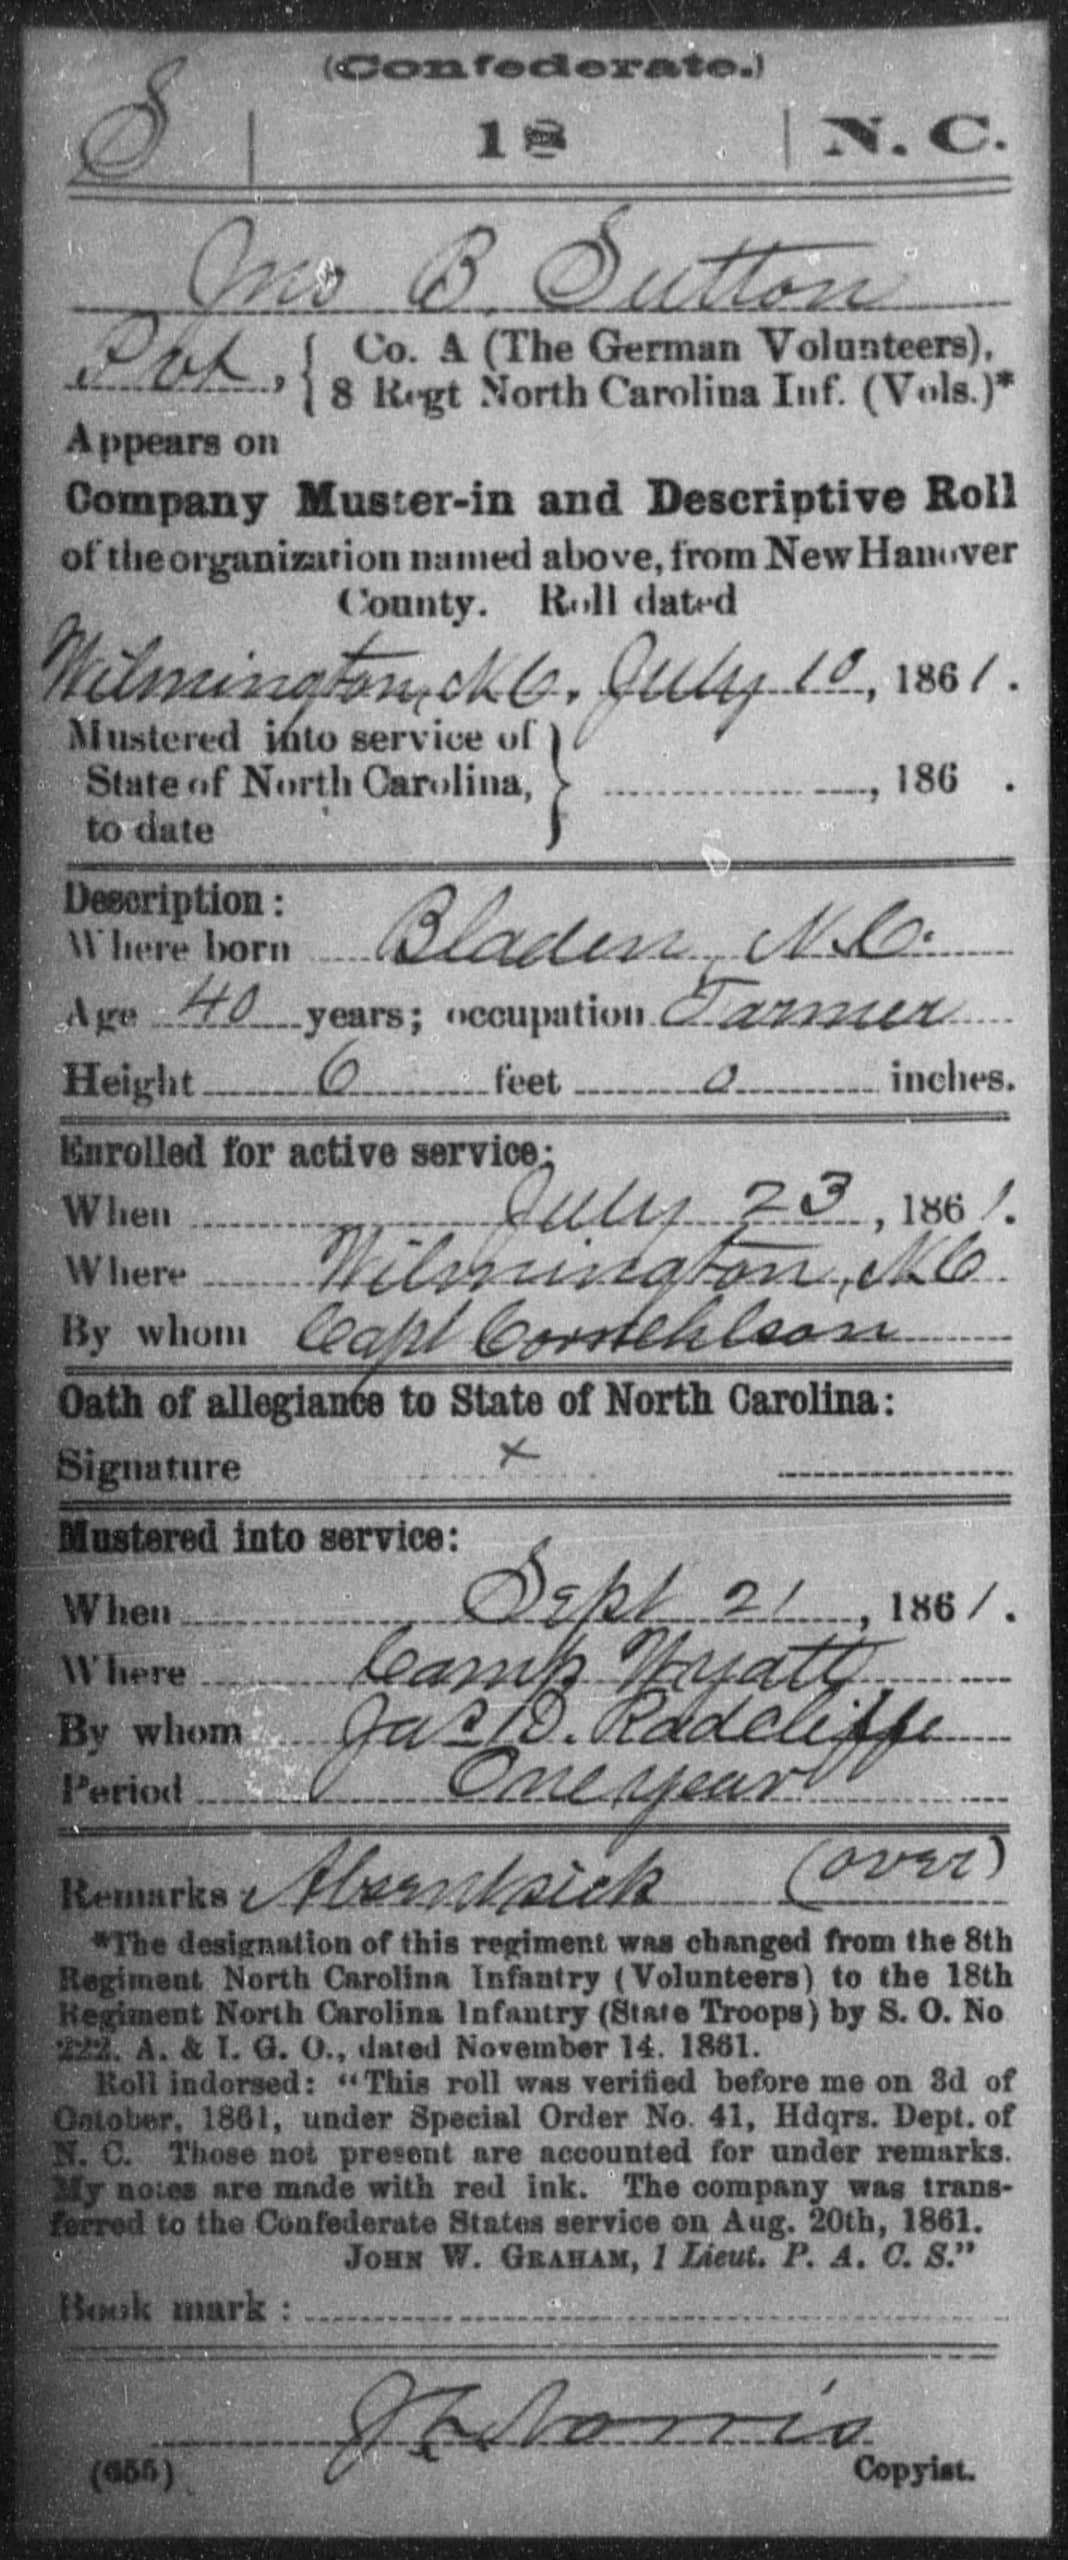 (Confederate.)
S | 18 | N. C.
Jno B. Sutton
Pvt, { Co. A (The German Volunteers),
8 Regt North Carolina Inf. (Vols.)*
Appears on
Company Muster-in and Descriptive Roll
of the organization named above, from New Hanover
County. Roll dated
Wilmington, N.C., July 10, 1861.
Mustered into service of
State of North Carolina, } , 186 .
to date
Description:
Where born Bladen, N.C.
Age 40 years; occupation Farmer
Height 6 feet 0 inches.
Enrolled for active service:
When July 23, 1861.
Where Wilmington, N.C.
By whom Capt Cornehlson
Oath of allegiance to State of North Carolina:
Signature x
Mustered into service:
When Sept 21, 1861.
Where Camp Wyatt
By whom Jas D. Radcliffe
Period One year
Remarks: Absent sick (over)
*The designation of this regiment was changed from the 8th
Regiment North Carolina Infantry (Volunteers) to the 18th
Regiment North Carolina Infantry (State Troops) by S. O. No
222, A. & I. G. O., dated November 14, 1861.
Roll indorsed: "This roll was verified before me on 3d of
October, 1861, under Special Order No. 41, Hdqrs. Dept. of
N. C. Those not present are accounted for under remarks.
My notes are made with red ink. The company was trans-
ferred to the Confederate States service on Aug. 20th, 1861.
JOHN W. GRAHAM, 1 Lieut. P. A. C. S."
Book mark:
Norris
(655) Copyist.